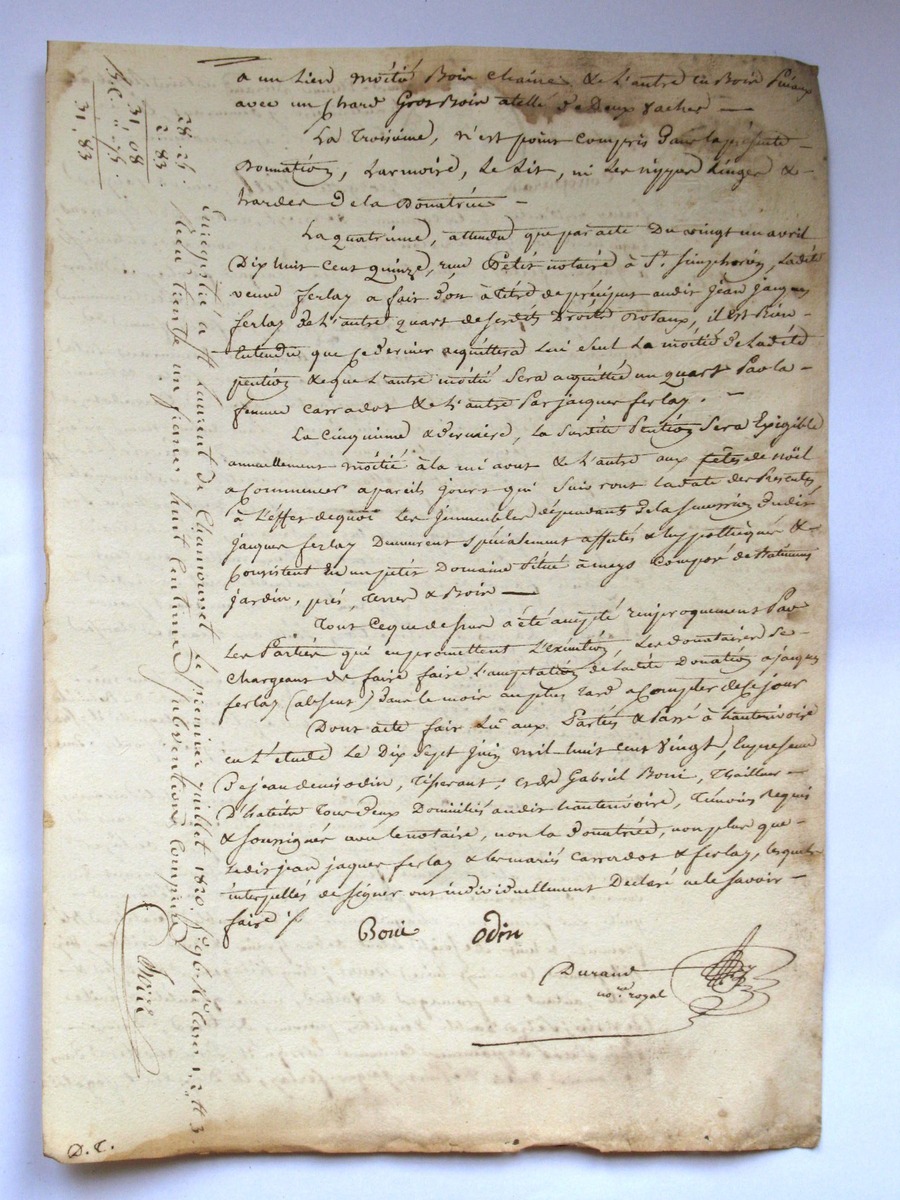 a un lien moitié Bois chaine & L'autre en Bois Pinaux
avec un chard Gros Bois atellé de Deux vaches —
La Troisieme, n'est point compris Dans la présente
Donnation, Larmoire, Le Lit, ni Les nyppes Linges &
hardes de la Donatrice —
La quatrieme, attendu que par acte Du vingt un avril
Dix huit cent quinze, reçu Petit notaire à St. Simphorien, Ladite
veuve ferlay a fait Don à titre de préciput audit jean jacques
ferlay de L'autre quart de sesdits Droits Dotaux, il est Bien
Entendu que ce dernier acquittera Lui seul La moitié de Ladite
pention & que L'autre moitié Sera acquittée un quart Par la
femme carradot & L'autre Par jacques ferlay. —
La Cinquieme & Derniere, La Susdite Pention Sera Exigible
annuellement moitié à la mi aout & L'autre aux fêtes de Noël
a Commencer a pareils jours qui Suivront Ladate des Presentes
à L'effet de quoi Les jmmeubles dépendants de la succession dudit
jacques ferlay Demeurent spécialement affectés & hypothéqués &
Consistent En un petit Domaine Situé à meys Composé de Batiments
jardin, prés, Terres & Bois —
Tout Ceque dessus a été accepté reciproquement Par
Les Parties qui en promettent L'exécution, Les donataires Se
Chargeant de faire faire L'acceptation de Ladite Donation a jacques
ferlay (absent) Dans le mois au plus tard a Compter de Ce jour
Dont acte fait Lu aux Parties & Passé à hauterivoire
en L'étude Le Dix Sept Juin mil huit cent Vingt, En presence
De jean denis odin, Tisserant, & de Gabriel Boni, Tailleur
D'habits Tous deux Domiciliés audit hauterivoire, Témoins Requis
& soussignés avec le notaire, non la Donatrice, non plus que
ledit jean jaques ferlay & les mariés Carradot & ferlay, lesquels
interpellés de signer ont individuellement Déclaré ne le savoir
faire ./.
Boni odin
Durand
no.re royal
Enregistré à St Laurent de Chamousset le premier juillet 1820
Reçu trente un francs huit centimes Subvention Comprise
28. 25.
2. 83.
31, 08
31, 83
D. C.